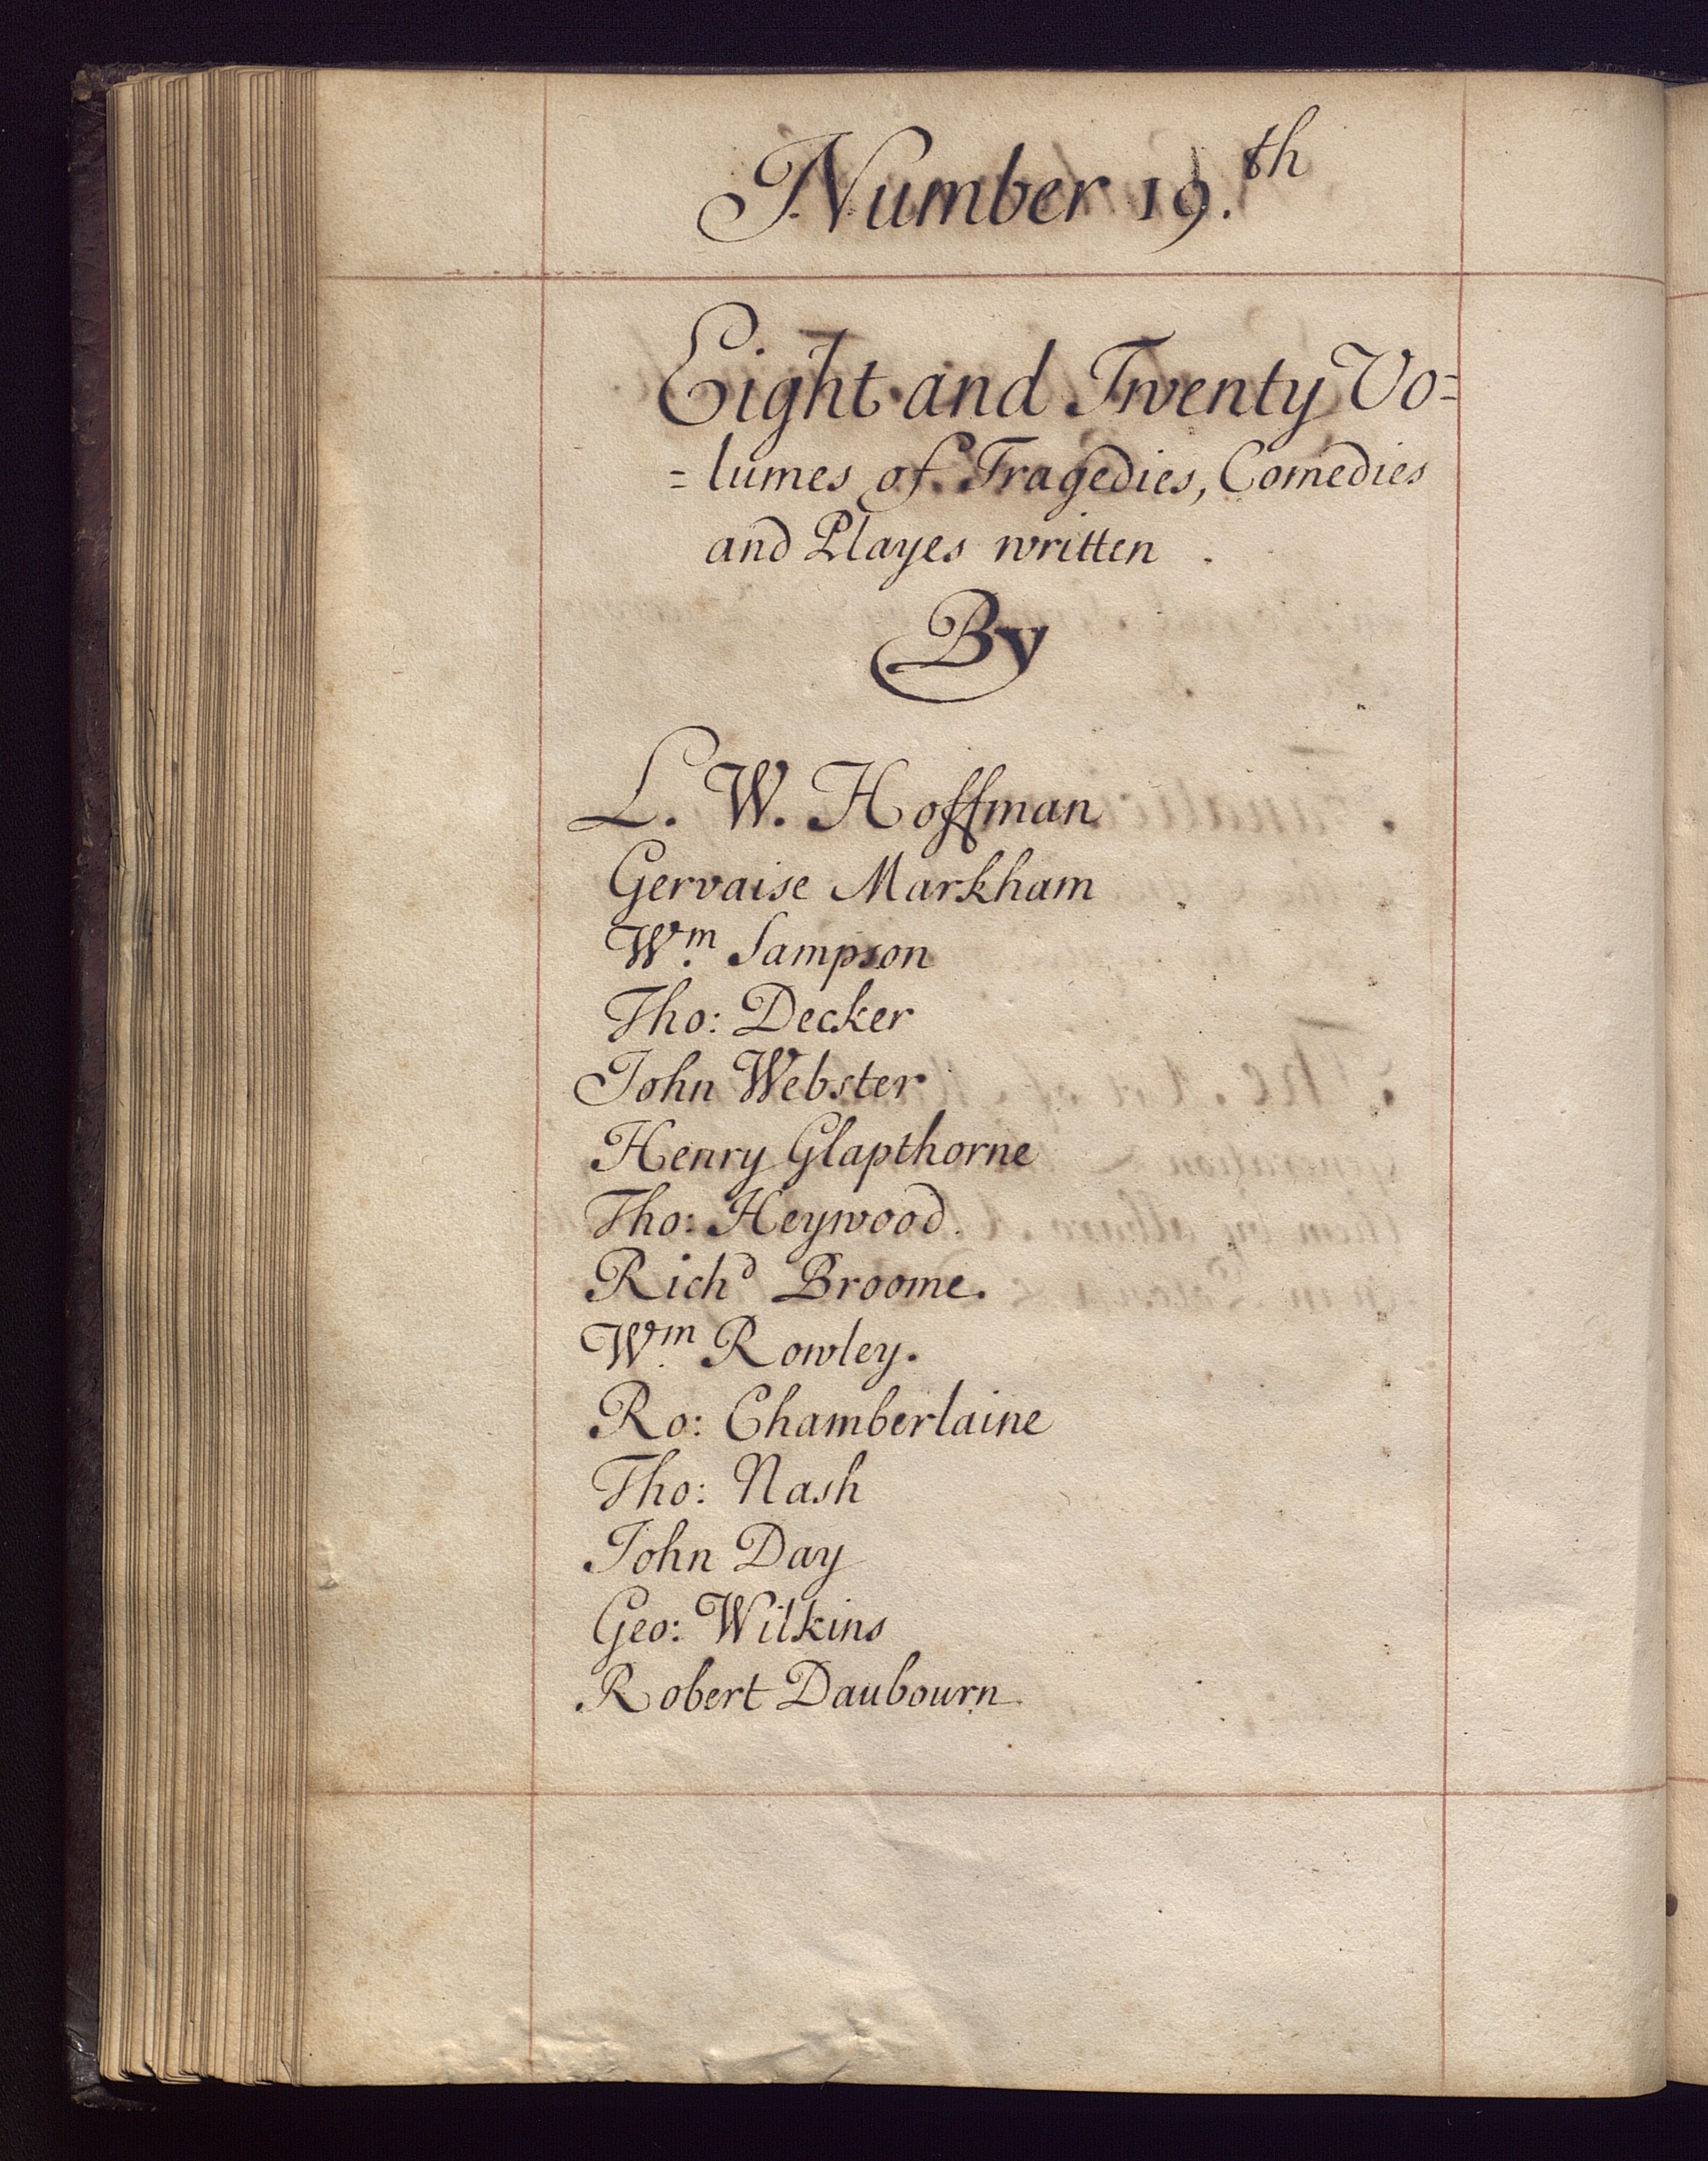 Number 19.th
Eight and Twenty Vo=
=lumes of Tragedies, Comedies
and Playes written
By
L. W. Hoffman
Gervaise Markham
Wm. Sampson
Tho: Decker
John Webster
Henry Glapthorne
Tho: Heywood
Richd Broome.
Wm. Rowley.
Ro: Chamberlaine
Tho: Nash
John Day
Geo: Wilkins
Robert Daubourn